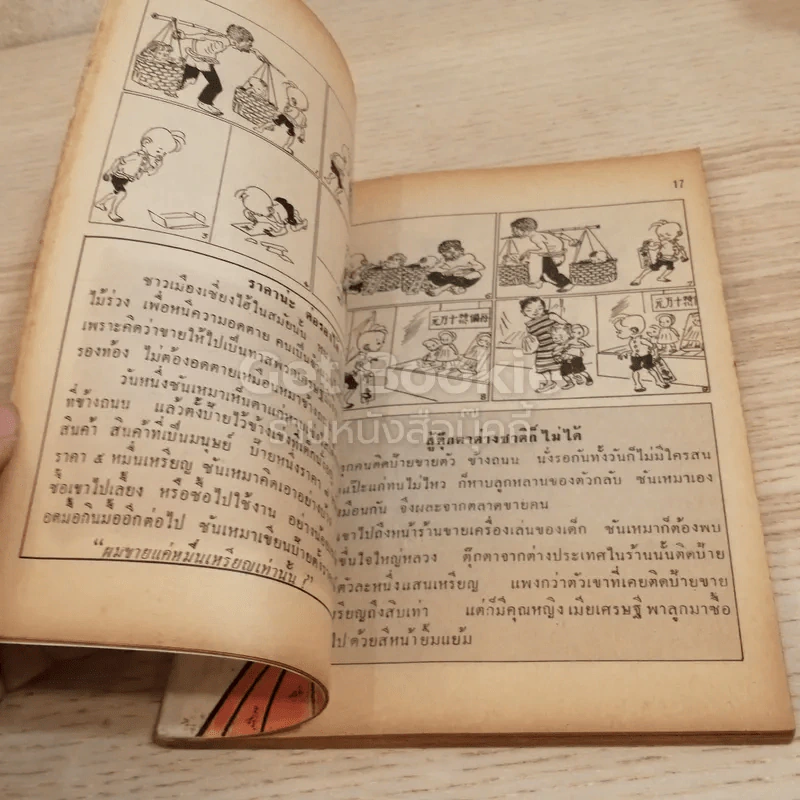 3
ราคาน่ะ
ชาวเมืองเซี่ยงไฮ้ในสมัยนั้น
ไม้ร่วง เพื่อหนีความอดตาย
เพราะคิดว่าขายให้ไปเป็นทาส
รองท้อง ไม่ต้องอดตายเหมือนหมาข้าง
วันหนึ่งซันเหมาเห็นตาแก่
ที่ข้างถนน แล้วตั้งป้ายไว้ข้างเข่ง
สินค้า สินค้าที่เป็นมนุษย์ ป้ายหนึ่งราคา
ราคา ๕ หมื่นเหรียญ ซันเหมาคิดเอาอย่างบ้าง
ซื้อเขาไปเลี้ยง หรือซื้อไปใช้งาน
อดมื้อกินมื้ออีกต่อไป ซันเหมาเขียนป้ายตั้ง
"ผมขายแค่หมื่นเหรียญเท่านั้น
17
6
7
8
9
สู้ตุ๊กตาต่างชาติก็ไม่ได้
ทุกคนติดป้ายขายตัว ข้างถนน นั่งรอกันทั้งวันก็ไม่มีใครสน
แป๊ะแก่ทนไม่ไหว ก็หาบลูกหลานของตัวกลับ ซันเหมาเอง
เหมือนกัน จึงผละจากตลาดขายคน
เขาไปถึงหน้าร้านขายเครื่องเล่นของเด็ก ซันเหมาก็ต้องพบ
ขื่นใจใหญ่หลวง ตุ๊กตาจากต่างประเทศในร้านนั้นติดป้าย
ตัวละหนึ่งแสนเหรียญ แพงกว่าตัวเขาที่เคยติดป้ายขาย
เหรียญถึงสิบเท่า แต่ก็มีคุณหญิง เมียเศรษฐี พาลูกมาซื้อ
ไป ด้วยสีหน้ายิ้มแย้ม
Bookie
ร้านหนังสือบุ๊คกี้